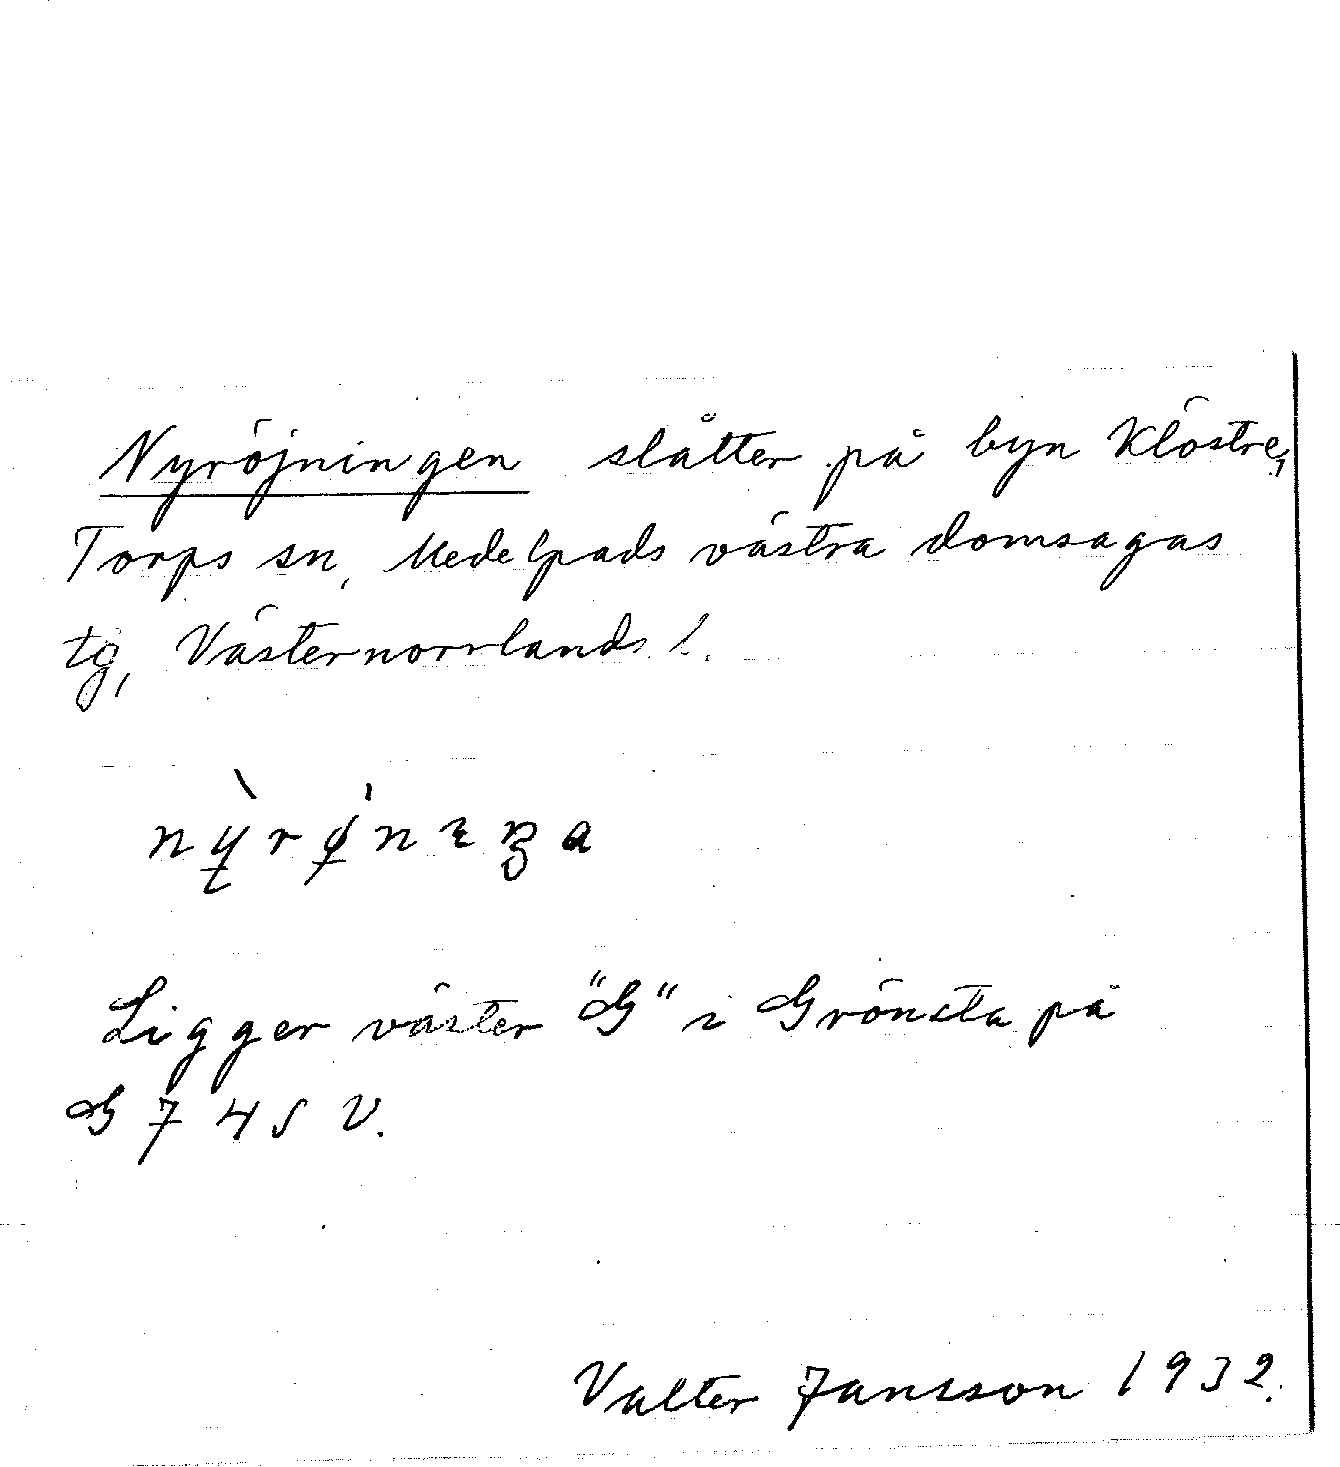 Nyröjningen slåtter på byn Klöstre,
Torps sn, Medelpads västra domsagas
tg, Västernorrlands l.
Ligger väster "G" i Grönsta på
G 7 45 V.
Valter Jansson 1932.